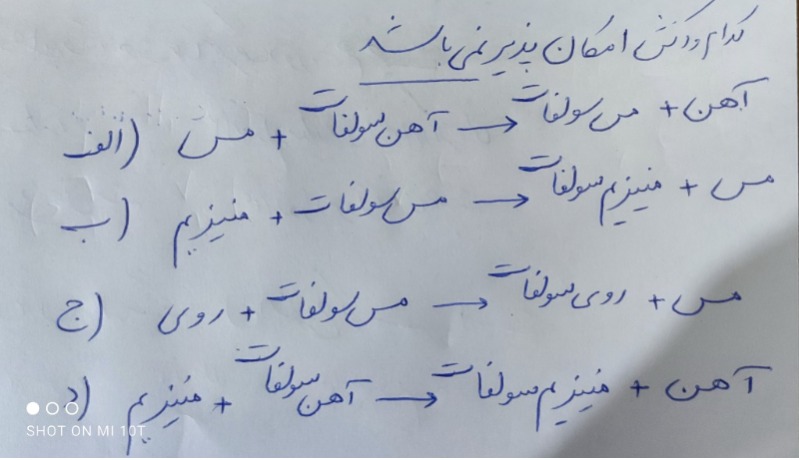 کدام واکنش امکان پذیر نمی باشد
الف) مس + آهن سولفات → مس سولفات + آهن
ب) منیزیم + مس سولفات → منیزیم سولفات + مس
ج) روی + مس سولفات → روی سولفات + مس
د) منیزیم + آهن سولفات → منیزیم سولفات + آهن
SHOT ON MI 10T